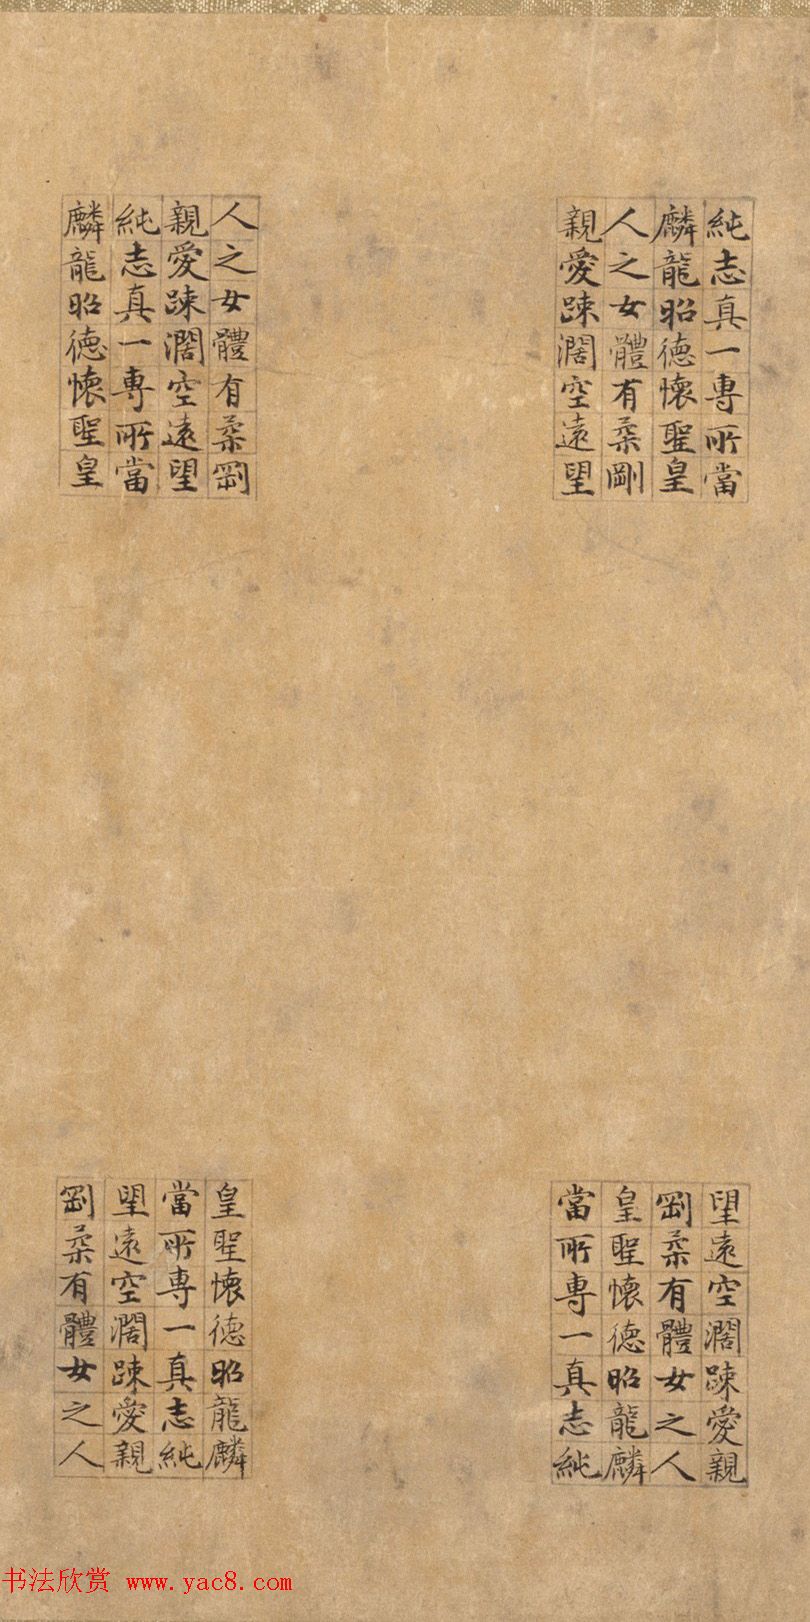 純志真一專所當
麟龍昭德懷聖皇
人之女體有柔剛
親愛踈濶空遠望
人之女體有柔剛
親愛踈濶空遠望
純志真一專所當
麟龍昭德懷聖皇
望遠空濶踈愛親
剛柔有體女之人
皇聖懷德昭龍麟
當所專一真志純
皇聖懷德昭龍麟
當所專一真志純
望遠空濶踈愛親
剛柔有體女之人
书法欣赏 www.yac8.com